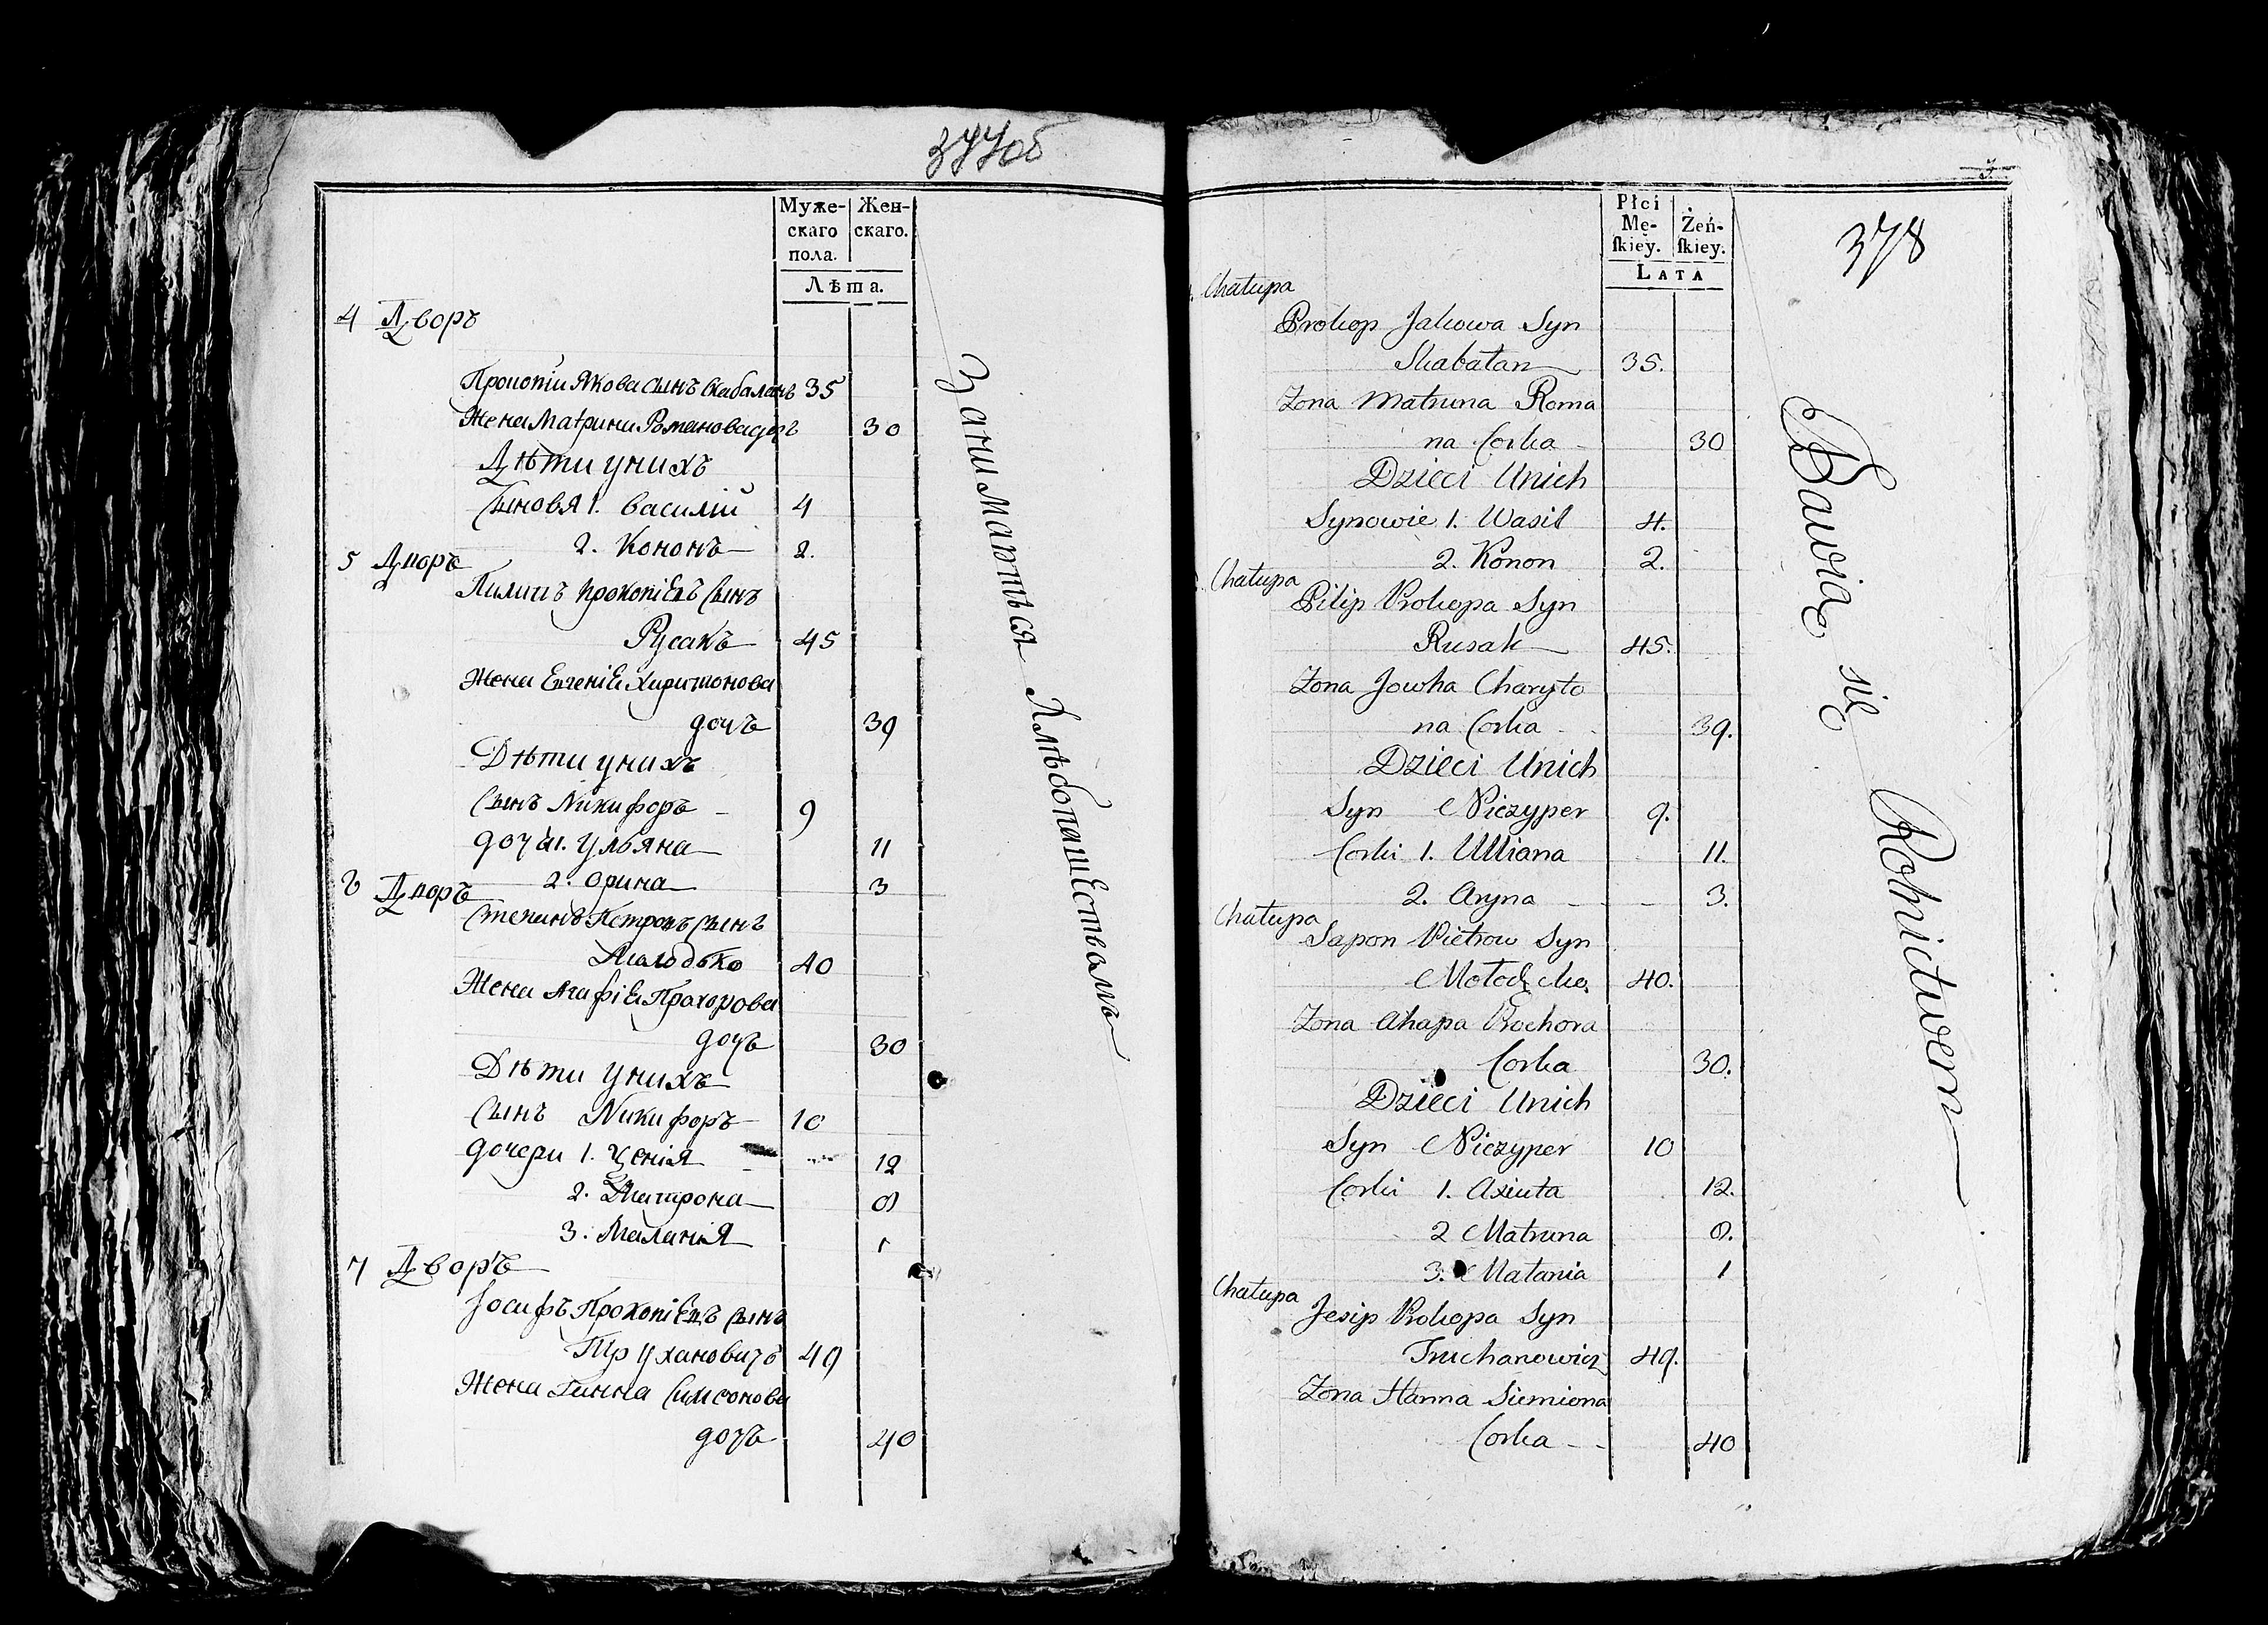 377об
Муже-
скаго
пола.
Жен-
скаго.
Лѣта.
4 Дворъ
Прокопiй Якова сынъ Скабаланъ 35
Жена Матрина Романова дочъ 30
Дѣти унихъ
Сыновя 1. Василiй 4
2. Кононъ 2.
5 Дворъ
Пилипъ Прокопiевъ Сынъ
Русакъ 45
Жена Евгенiя Харитонова
дочъ 39
Дѣти унихъ
Сынъ Никифоръ 9
дочери 1. Ульяна 11
2. Орина 3
6 Дворъ
Степанъ Петровъ Сынъ
Молодько 40
Жена Агафiя Прохорова
дочъ 30
Дѣти унихъ
Сынъ Никифоръ 10
дочери 1. 12
2. Матрона 8
3. Маланiя 1
7 Дворъ
Iосифъ Прокопiевъ Сынъ
Трухановичъ 49
Жена Ганна Симонова
дочъ 40
Заниматься Хлѣбопашествомъ
378
Płci
Mę-
skiey.
Żeń-
skiey.
LATA
Chałupa
Prokop Jakowa Syn
Skabałan 35.
Zona Matruna Roma
na Corka 30
Dzieci Unich
Synowie 1. Wasil 4.
2. Konon 2.
Chałupa
Pilip Prokopa Syn
Rusak 45.
Zona Jowha Charyto
na Corka 39.
Dzieci Unich
Syn Niczyper 9.
Corki 1. Ulliana 11.
2. Aryna 3.
Chałupa
Sapon Pietrow Syn
Mołodzko 40.
Zona Ahapa Prochora
Corka 30.
Dzieci Unich
Syn Niczyper 10
Corki 1. Axiuta 12.
2 Matruna 8.
3. Małania 1
Chałupa
Jesip Prokopa Syn
Truchanowicz 49.
Zona Hanna Siemiona
Corka 40
Bawią się Rolnictwem